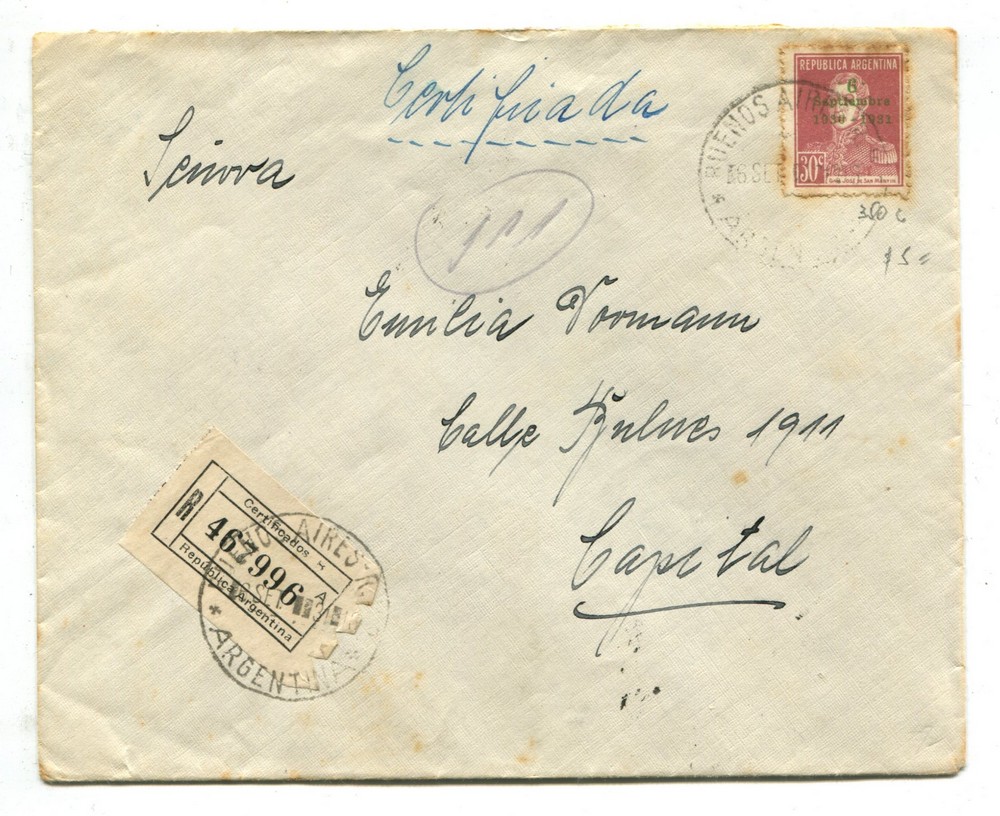 Certificada
Señora
REPUBLICA ARGENTINA
6
Septiembre
1930 - 1931
30c
GRAL JOSÉ DE SAN MARTIN
BUENOS AIRES
6 SET
ARGENTINA
350 c
$ 5 =
Emilia Voomann
Calle 1911
Capital
R
Certificados
467996
A
República Argentina
AIRES
SET
ARGENTINA